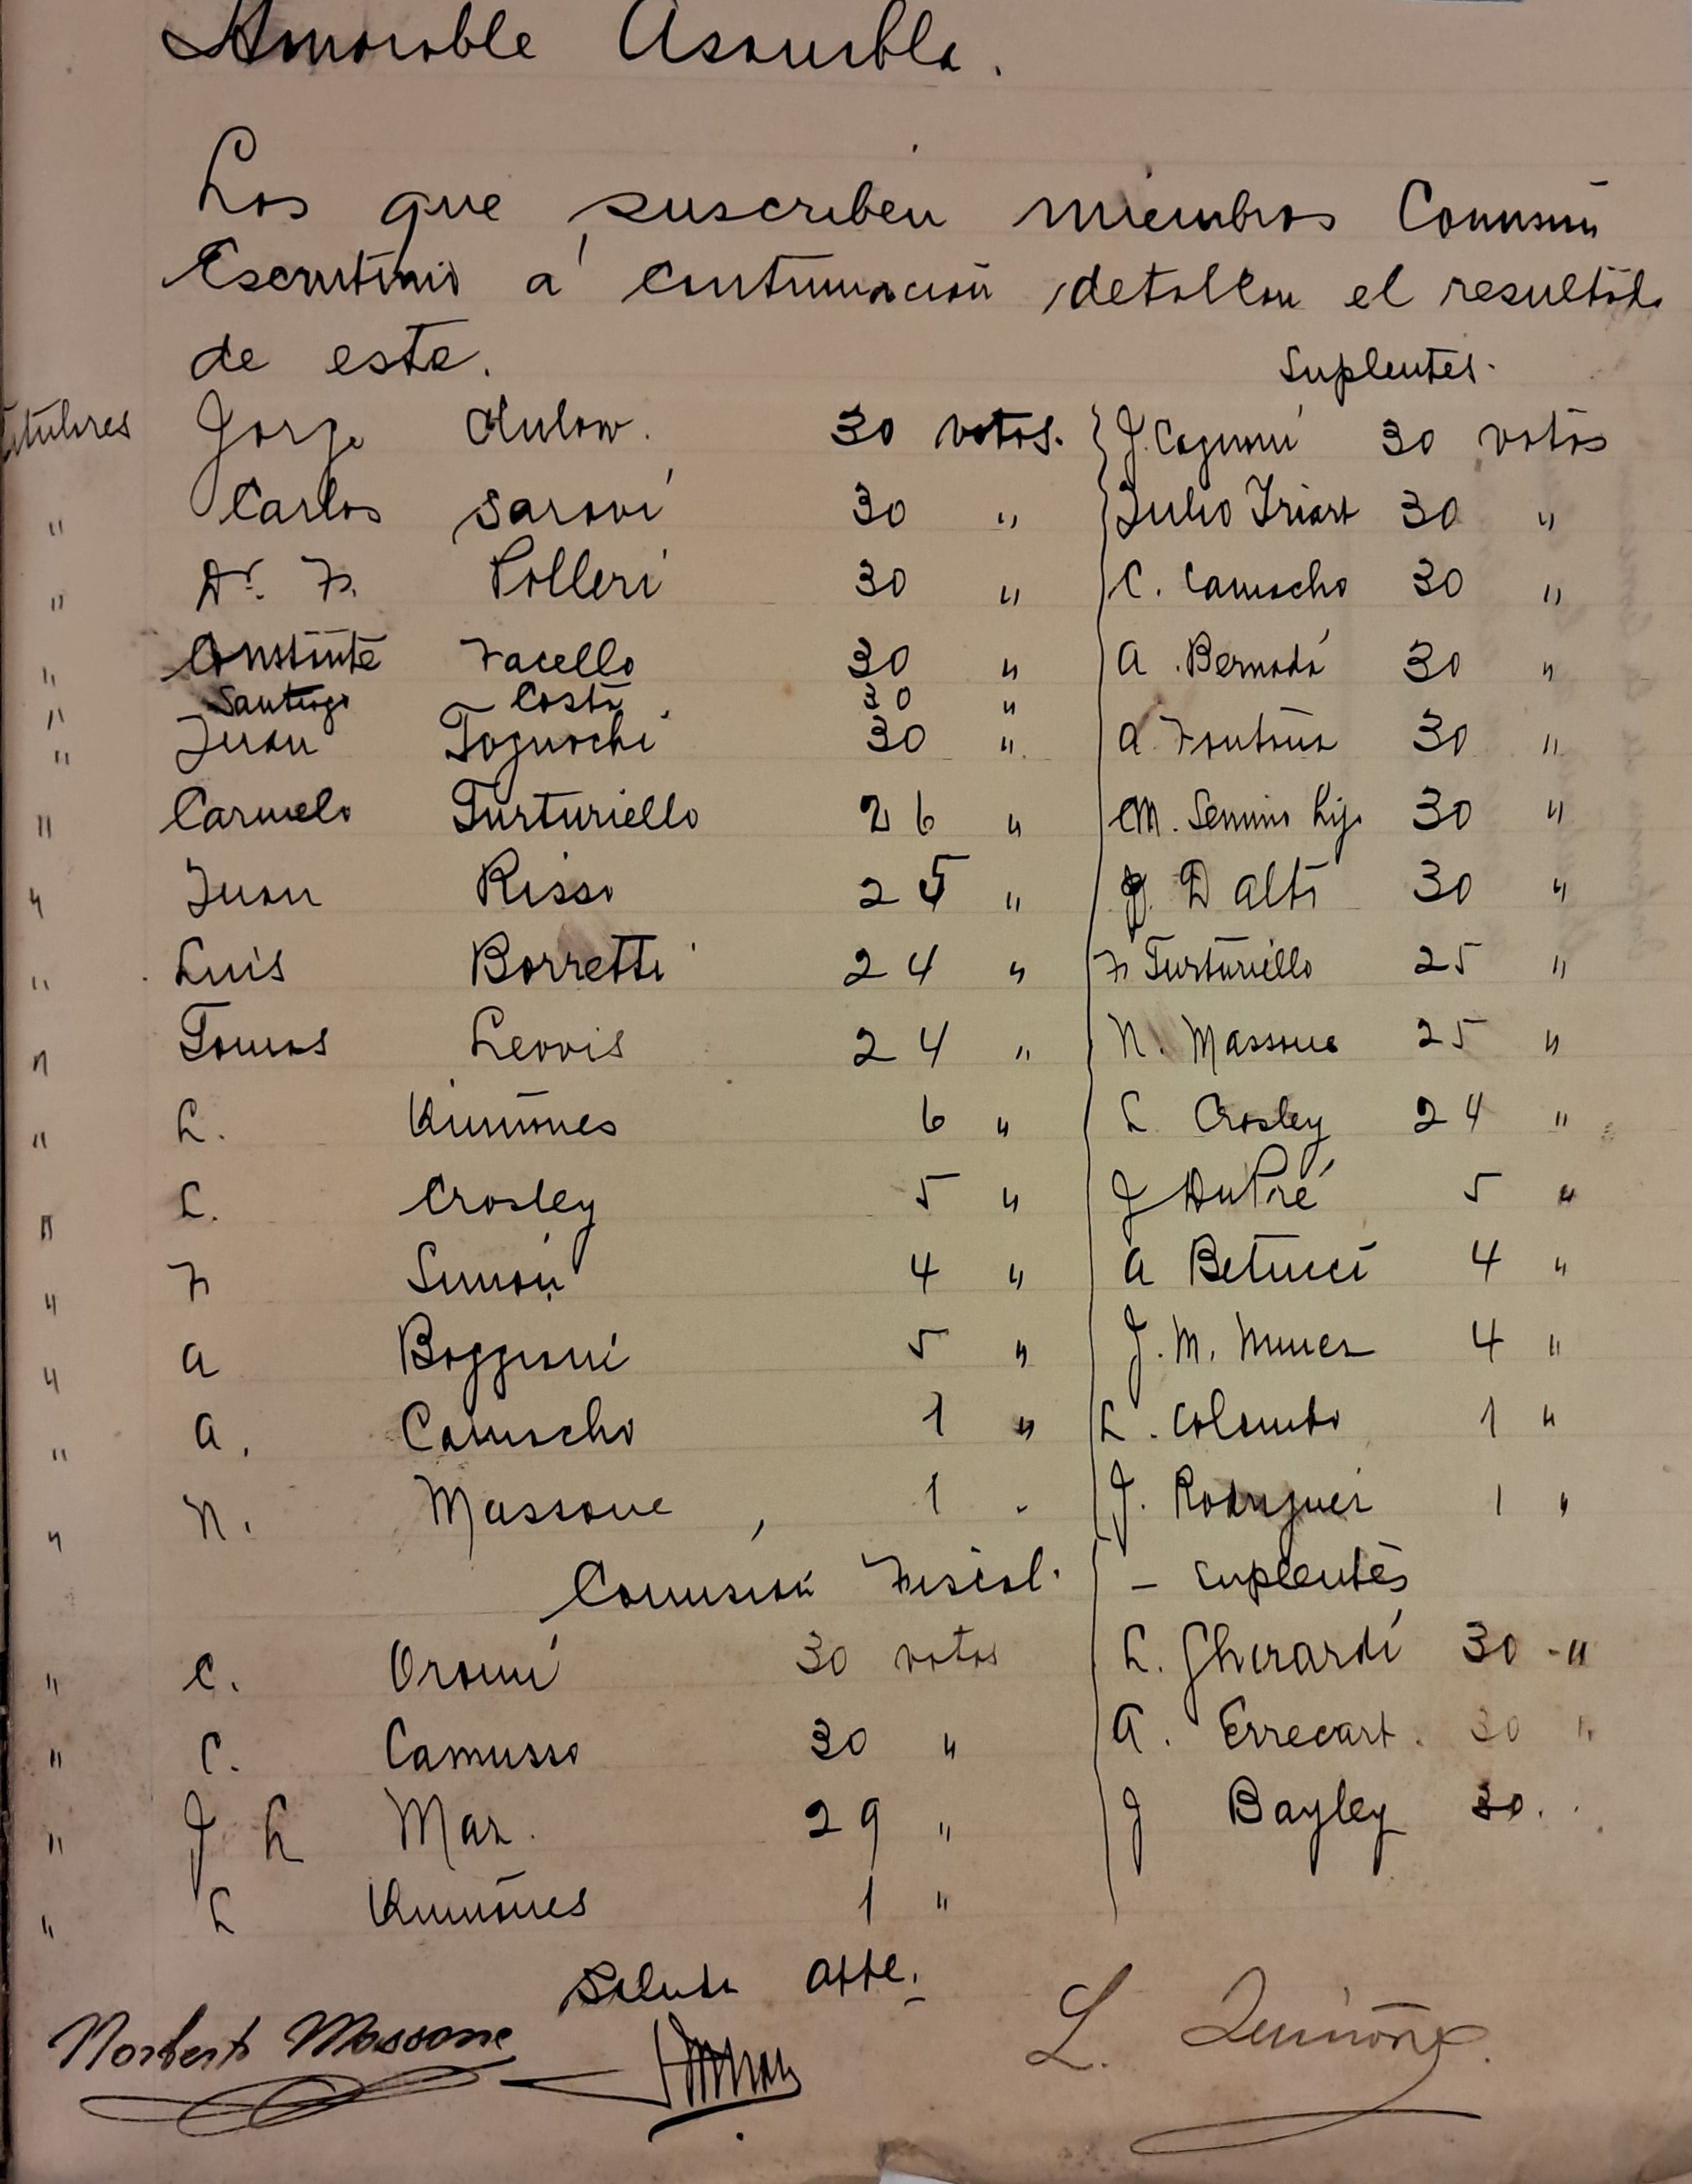 Honorable Asamblea.
Los que suscriben miembros Comisión
Escrutinio a continuación detallan el resultado
de este.
Suplentes.
Titulares Jorge 30 votos. J. Cagnoni 30 votos
" Carlos Saroví 30 " Julio Iriart 30 "
" Dr. F. Polleri 30 " C. Camacho 30 "
" Constante Facello 30 " A. Bernadá 30 "
" Santiago Costa 30 "
" Juan Tognochi 30 " A. Fontana 30 "
" Carmelo Turturiello 26 " M. Semino hijo 30 "
" Juan Risso 25 " J. D alto 30 "
" Luis Borretti 24 " F Turturiello 25 "
" Tomas Lewis 24 " N. Massone 25 "
" L. Quiñones 6 " L Crosley 24 "
" L. Crosley 5 " J DuPré 5 "
" F Simón 4 " A Betucci 4 "
" A Boggioni 5 " J. M. 4 "
" A. Camacho 1 " L. Colombo 1 "
" N. Massone 1 " J. Rodriguez 1 "
Comisión Fiscal. - suplentes
" C. Oromí 30 votos L. Ghirardi 30 - "
" C. Camusso 30 " A. Errecart. 30 "
" J L Maz. 29 " J Bayley 30. "
" L Quiñones 1 "
Saluda atte.
Norberto Massone L. Quiñones.